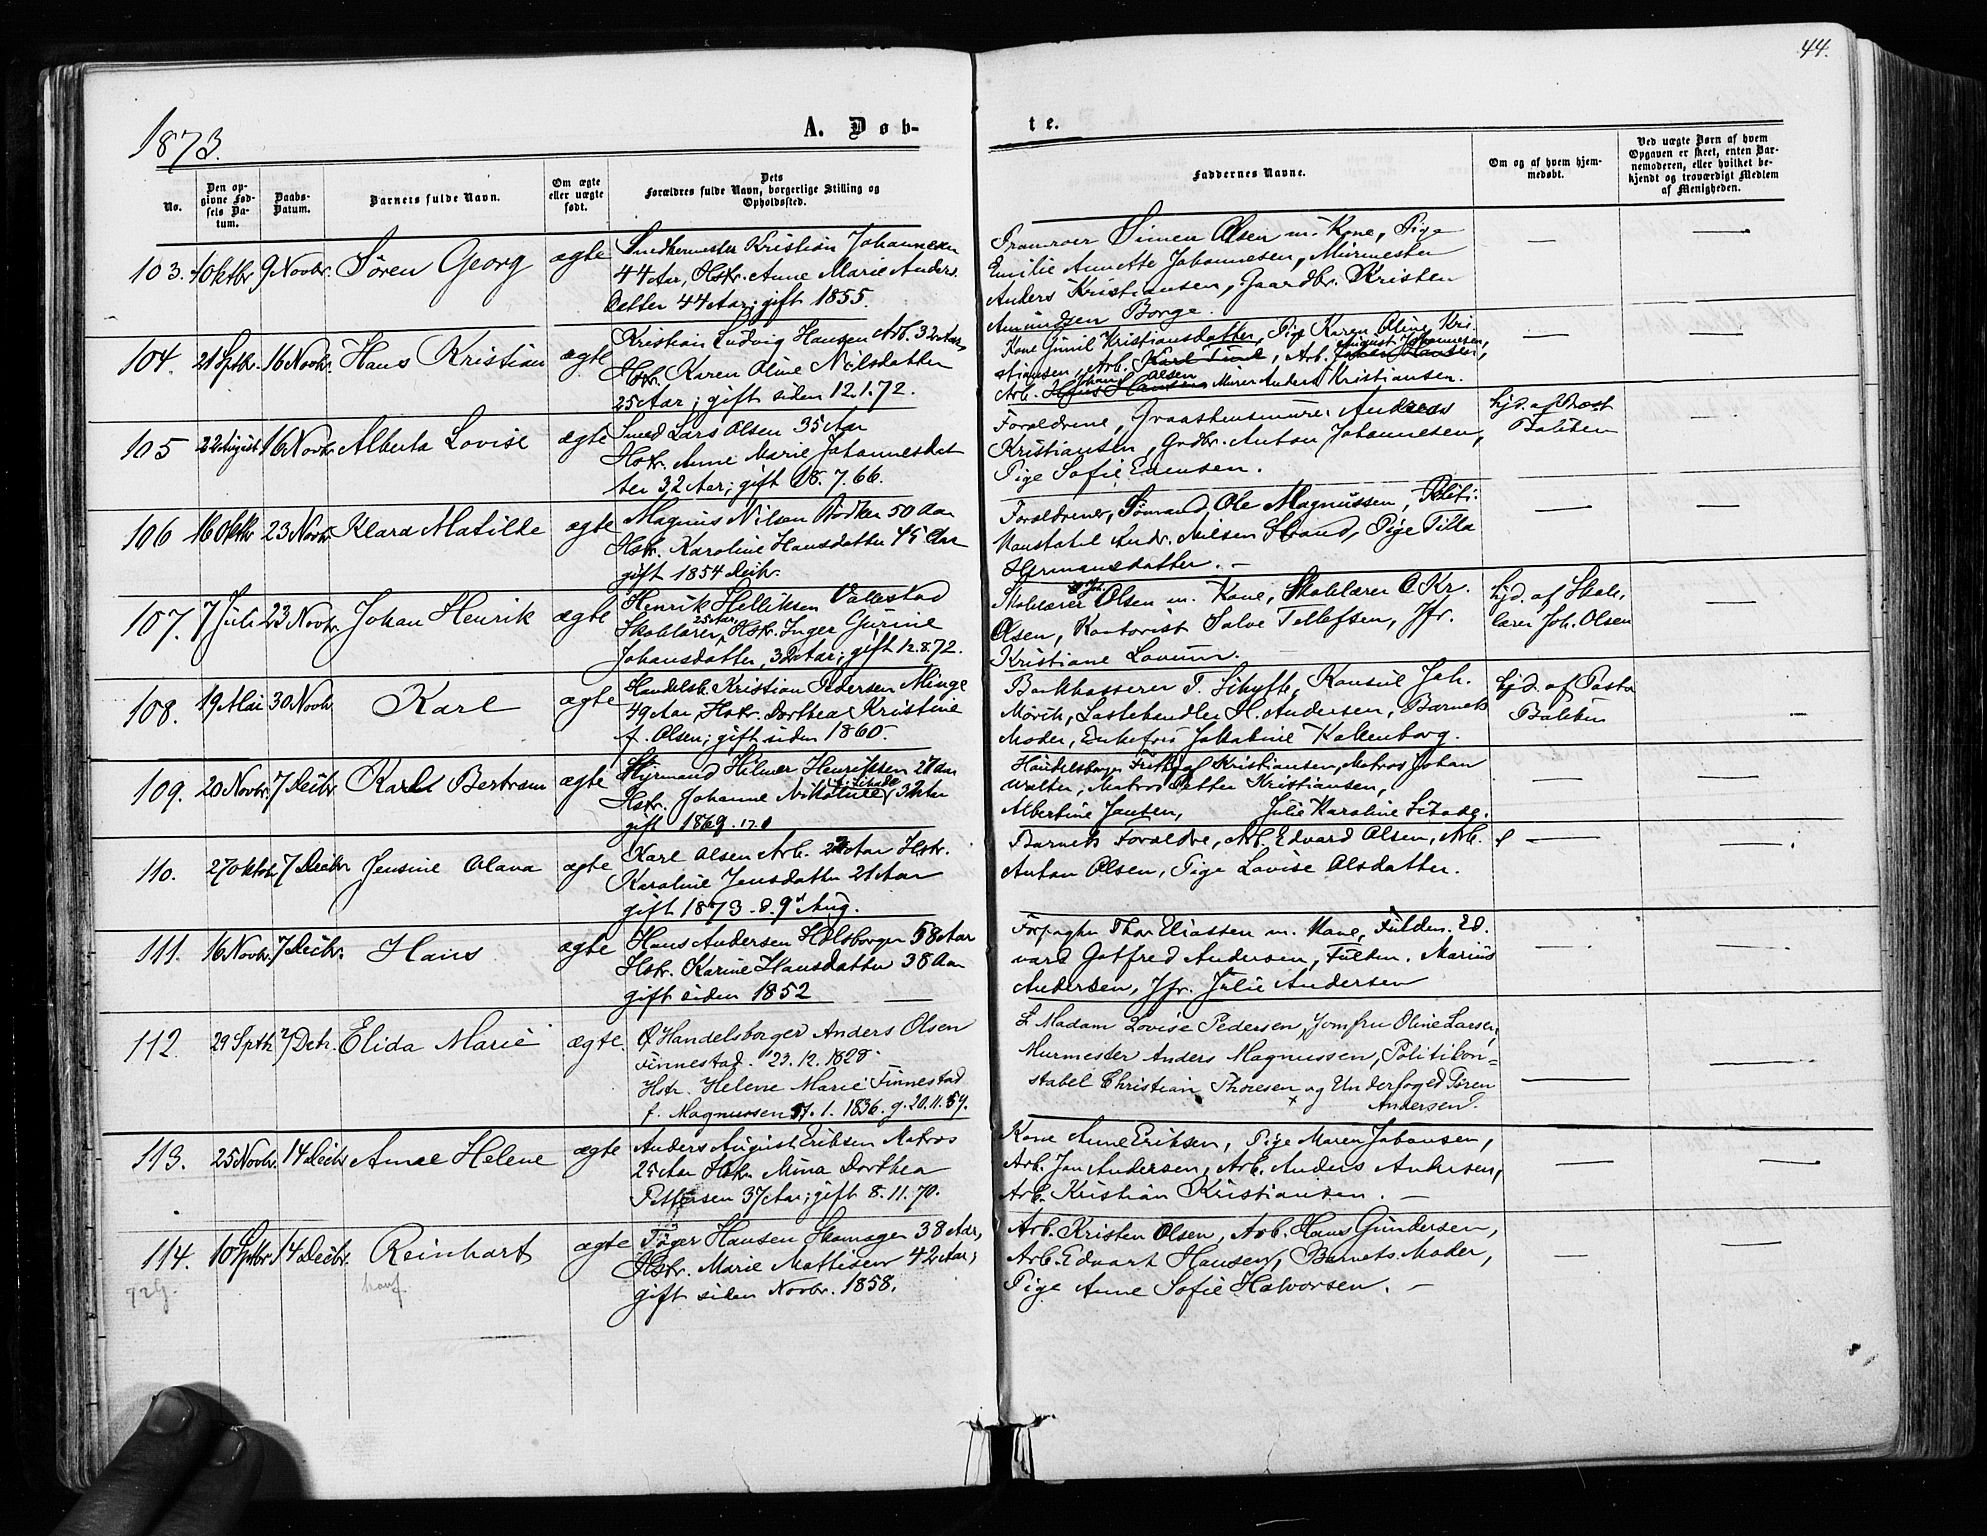 44.
1873.
A. Døb-
te.
No.
Den op-
givne Fød-
sels Da-
tum.
Daabs-
Datum.
Barnets fulde Navn.
Om ægte
eller uægte
født.
Dets
Forældres fulde Navn, borgerlige Stilling og
Opholdssted.
Faddernes Navne.
Om og af hvem hjem-
medøbt.
Ved uægte Børn af hvem
Opgaven er skeet, enten Bar-
nemoderen, eller hvilket be-
kjendt og troværdigt Medlem
af Menigheden.
103. 9 Novbr. Søren Georg ægte
Snedkermester Kristian Johannesen
44 Aar, Hstr. Anne Marie Anders
datter 44 Aar; gift 1855.
Simen Olsen m. Kone, Pige
Emilie Annette Johannesen, Murmester
Anders Kristiansen, Gaardbr. Kristen
Amundsen Borge.
104. 21 Septbr. 16 Novbr. Hans Kristian ægte
Kristian Ludvig Hansen Arb. 32 Aar,
Hstr. Karen Oline Nilsdatter
25 Aar; gift siden 12.1.72.
Kone Gunil Kristiansdatter, Pige Karen Oline Kri-
stiansen, Arb. Arb. August Johannesen,
Arb. Johan Olsen Murer Anders Kristiansen.
105 22 August 16 Novbr. Alberta Lovise ægte
Smed Lars Olsen 35 Aar
Hstr. Anne Marie Johannesdat
ter 32 Aar; gift 18.7.66.
Forældrene, Graastensmurer Andreas
Kristiansen, Grdbr. Anton Johannesen,
Pige Sofie Evensen.
hjd. af Past
Balchen
106 16 Oktbr 23 Novbr. Klara Matilde ægte
Magnus Nilsen Bødker 50 Aar
Hstr. Karoline Hansdatter 45 Aar
gift 1854 Decbr.
Forældrene, Sømand Ole Magnussen, Politi-
konstabel Andr. Nilsen Strand, Pige Tilla
Hermansdatter. —
107. 7 Juli 23 Novbr. Johan Henrik ægte
Henrik Helliksen Vallestad
Skolelærer, 25 Aar, Hstr. Inger Gurine
Johansdatter, 32 Aar; gift 12.8.72.
Skolelærer Joh. Olsen m. Kone, Skolelærer O. Kr.
Olsen, Kontorist Salve Tellefsen, Jfr.
Kristiane Lovum.
hjd. af Skole-
lærer Joh. Olsen
108. 19 Mai 30 Novb. Karl ægte
Handelsb. Kristian Pedersen Minge
49 Aar, Hstr. Dorthea Kristine
f. Olsen; gift siden 1860.
Bankkasserer T. Schytte, Konsul Joh.
Mørch, Lastehandler H. Andersen, Barnets
Moder, Enkefru Jakobine Kallenborg.
hjd. af Pastor
Balchen
109. 20 Novbr. 7 Decbr. Karl Bertram ægte
Styrmand Hilmer Henriksen 27 Aar
Hstr. Johanne Nikoline f. Schade 32 Aar
gift 1869.
Handelsborger Fritz Kristiansen, Matros Johan
Walter, Matros Petter Kristiansen,
Albertine Jansen, Julie Karoline Schade.
110. 27 Oktob. 7 Decbr. Jensine Olava ægte
Karl Olsen Arb. Aar Hstr.
Karoline Jensdatter 21 Aar
gift 1873. d. 9de Aug.
Barnets Forældre, Arb. Edvard Olsen, Arb.
Anton Olsen, Pige Lovise Olsdatter.
111. 16 Novb. 7 Decbr. Hans ægte
Hans Andersen Holsborgen 58 Aar
Hstr. Karine Hansdatter 38 Aar
gift siden 1852
Forpagter Thor Eliassen m. Kone, Fuldm. Ed-
vard Gotfred Andersen, Fuldm. Marius
Andersen, Jfr. Julie Andersen
112. 29 Septb. 7 Debr. Elida Marie ægte.
Handelsborger Anders Olsen
Finnestad. 23.12.1828.
Hstr. Helene Marie Finnestad
f. Magnussen 1. 1836. g. 20.11.59.
Madam Lovise Pedersen, Jomfru Oline Larsen,
Murmester Anders Magnussen, Politikon=
stabel Christian Thoresen og Underfoged Søren
Andersen.
113. 25 Novbr. 14 Decbr Anne Helene ægte
Anders August Eriksen Matros
25 Aar Hstr. Mina Dorthea
Pettersen 37 Aar; gift 8.11.70.
Kone Anne Eriksen, Pige Maren Johansen,
Arb. Jan Andersen, Arb. Anders Andersen,
Arb. Kristian Kristiansen. —
114. 10 Septbr. 14 Decbr. Reinhart ægte
Tøger Hansen Skomager 38 Aar,
Hstr. Marie Mattisen 42 Aar;
gift siden Novbr. 1858.
Arb. Kristen Olsen, Arb. Hans Gundersen,
Arb. Edvart Hansen, Barnets Moder,
Pige Anne Sofie Halvorsen. —